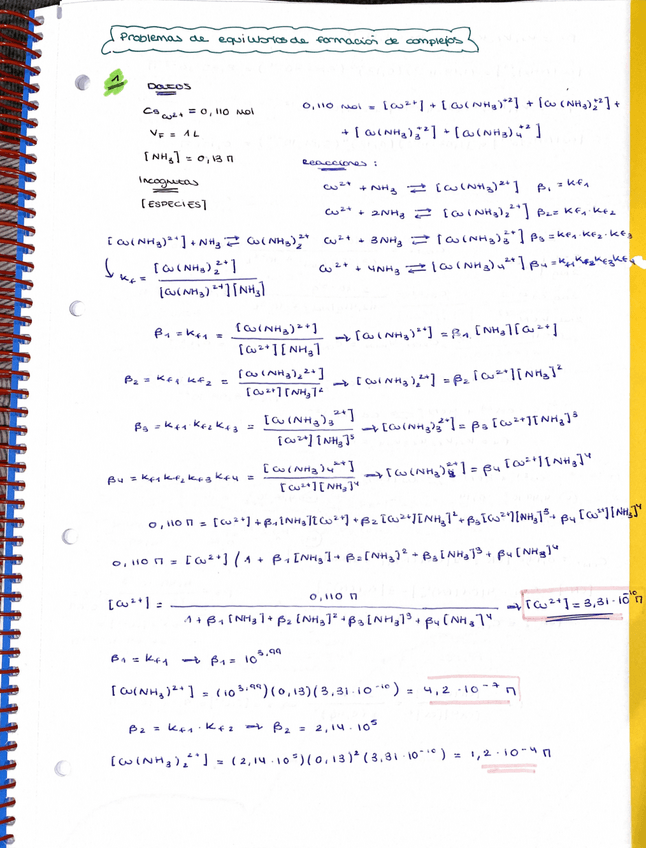 Problemas de equilibrios de formación de complejos
1
Datos
Cs Cu²⁺ = 0,110 mol
V_F = 1 L
[NH₃] = 0,13 M
Incognitas
[ESPECIES]
0,110 mol = [Cu²⁺] + [Cu(NH₃)⁺²] + [Cu(NH₃)₂⁺²] +
+ [Cu(NH₃)₃⁺²] + [Cu(NH₃)₄⁺²]
Reacciones:
Cu²⁺ + NH₃ ⇄ [Cu(NH₃)²⁺] β₁ = Kf₁
Cu²⁺ + 2NH₃ ⇄ [Cu(NH₃)₂²⁺] β₂ = Kf₁·Kf₂
[Cu(NH₃)²⁺] + NH₃ ⇄ Cu(NH₃)₂²⁺ Cu²⁺ + 3NH₃ ⇄ [Cu(NH₃)₃²⁺] β₃ = Kf₁·Kf₂·Kf₃
↳ Kf = [Cu(NH₃)₂²⁺] / [Cu(NH₃)²⁺][NH₃] Cu²⁺ + 4NH₃ ⇄ [Cu(NH₃)₄²⁺] β₄ = Kf₁Kf₂Kf₃Kf₄
β₁ = Kf₁ = [Cu(NH₃)²⁺] / [Cu²⁺][NH₃] → [Cu(NH₃)²⁺] = β₁ [NH₃][Cu²⁺]
β₂ = Kf₁ Kf₂ = [Cu(NH₃)₂²⁺] / [Cu²⁺][NH₃]² → [Cu(NH₃)₂²⁺] = β₂ [Cu²⁺][NH₃]²
β₃ = Kf₁ Kf₂ Kf₃ = [Cu(NH₃)₃²⁺] / [Cu²⁺][NH₃]³ → [Cu(NH₃)₃²⁺] = β₃ [Cu²⁺][NH₃]³
β₄ = Kf₁ Kf₂ Kf₃ Kf₄ = [Cu(NH₃)₄²⁺] / [Cu²⁺][NH₃]⁴ → [Cu(NH₃)²⁺] = β₄ [Cu²⁺][NH₃]⁴
0,110 M = [Cu²⁺] + β₁[NH₃][Cu²⁺] + β₂[Cu²⁺][NH₃]² + β₃[Cu²⁺][NH₃]³ + β₄[Cu²⁺][NH₃]⁴
0,110 M = [Cu²⁺] (1 + β₁[NH₃] + β₂[NH₃]² + β₃[NH₃]³ + β₄[NH₃]⁴
[Cu²⁺] = 0,110 M / 1 + β₁[NH₃] + β₂[NH₃]² + β₃[NH₃]³ + β₄[NH₃]⁴ → [Cu²⁺] = 3,31·10⁻¹⁰ M
β₁ = Kf₁ → β₁ = 10³·⁹⁹
[Cu(NH₃)²⁺] = (10³·⁹⁹)(0,13)(3,31·10⁻¹⁰) = 4,2·10⁻⁷ M
β₂ = Kf₁·Kf₂ ⇒ β₂ = 2,14·10⁵
[Cu(NH₃)₂²⁺] = (2,14·10⁵)(0,13)²(3,31·10⁻¹⁰) = 1,2·10⁻⁴ M